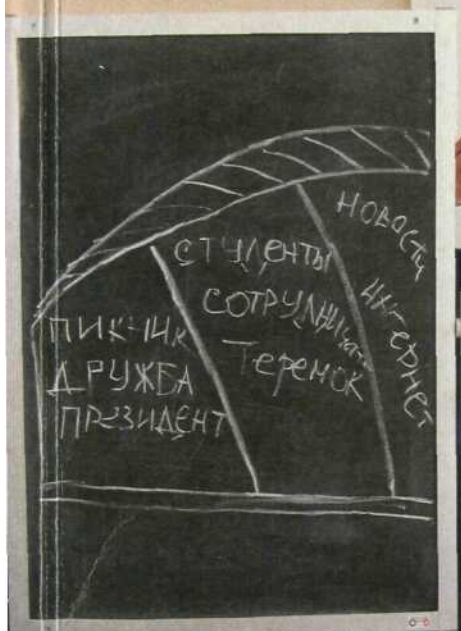 ПИКНИК
ДРУЖБА
ПРЕЗИДЕНТ
СТУДЕНТЫ
СОТРУДНИЧАТЬ
Теремок
НОВОСТИ
ИНТЕРНЕТ